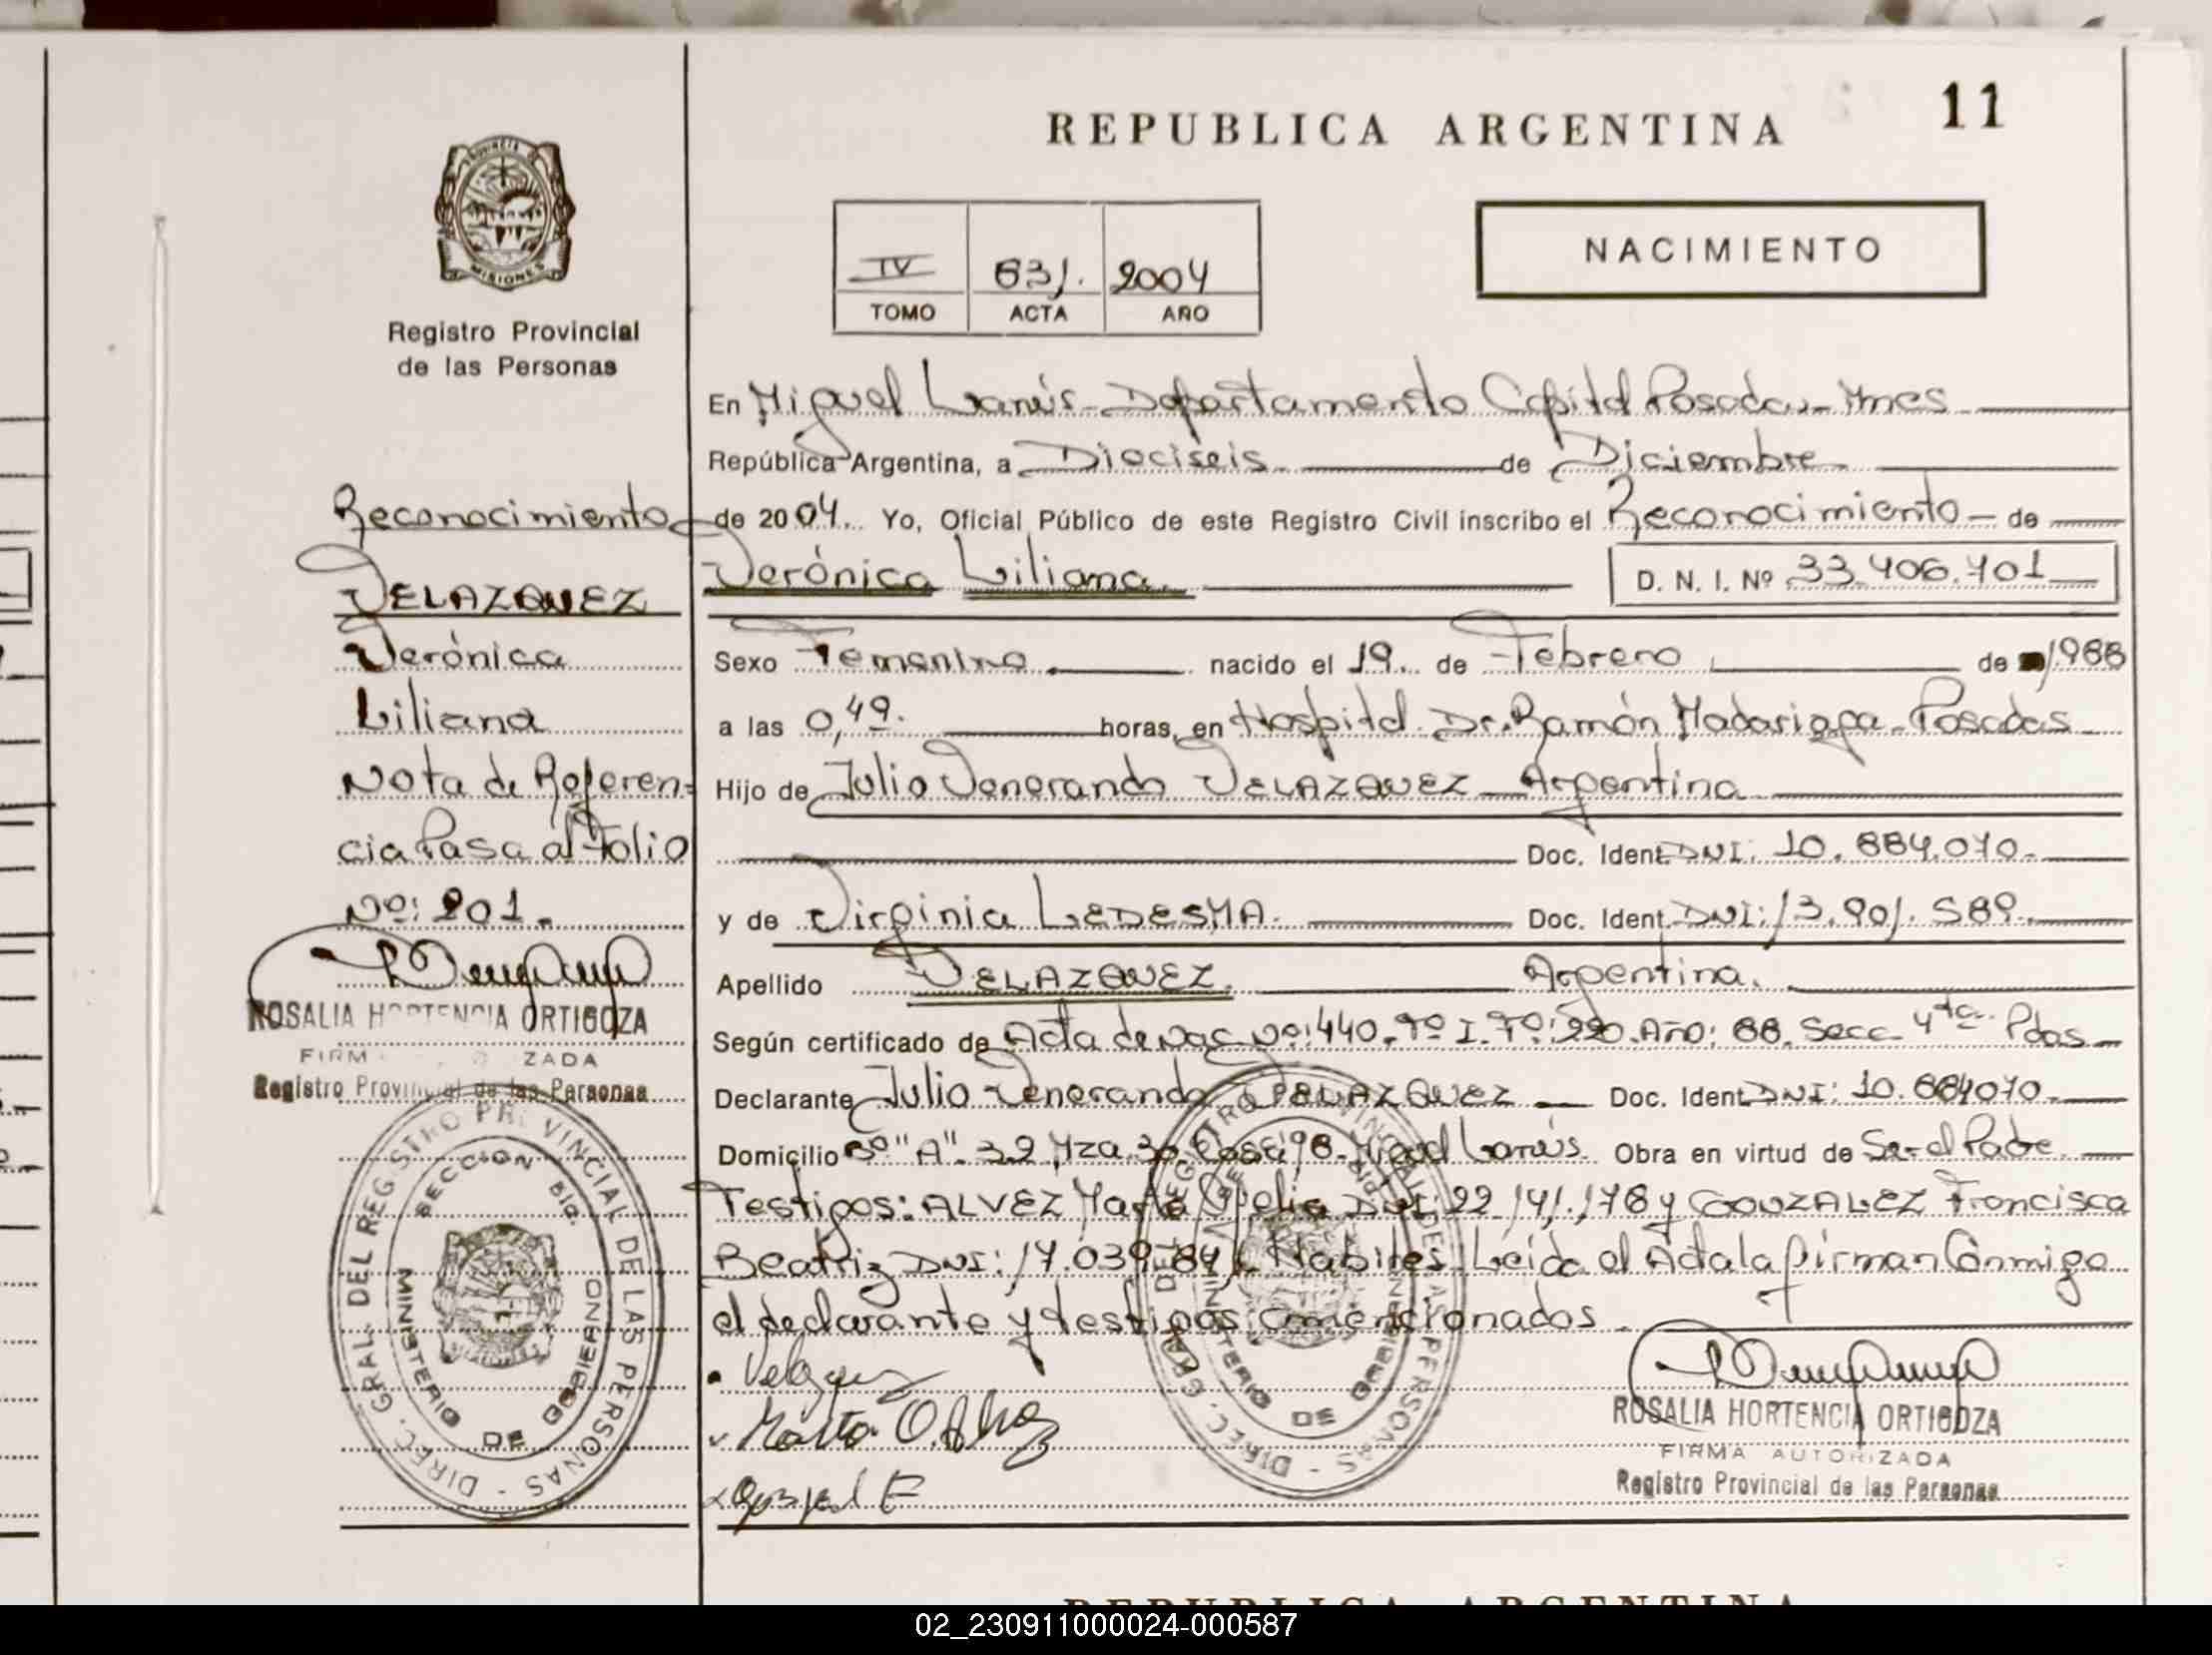 11
REPUBLICA ARGENTINA
PROVINCIA DE MISIONES
Registro Provincial
de las Personas
IV 631. 2004
TOMO ACTA AÑO
NACIMIENTO
Reconocimiento
VELAZQUEZ
Verónica
Liliana
Nota de Referen-
cia Pasa al Folio
Nº: 201.
ROSALIA HORTENCIA ORTIGOZA
FIRMA AUTORIZADA
Registro Provincial de las Personas
DIREC. GRAL. DEL REGISTRO PROVINCIAL DE LAS PERSONAS
MINISTERIO DE GOBIERNO
En Miguel Lanús - Departamento Capital Posadas - Mnes
República Argentina, a Dieciseis de Diciembre
de 2004. Yo, Oficial Público de este Registro Civil inscribo el Reconocimiento - de
Verónica Liliana. D. N. I. Nº 33.406.701
Sexo Femenino. nacido el 19. de Febrero de 1988
a las 0,49. horas, en Hospital Dr. Ramón Madariaga - Posadas
Hijo de Julio Venerando VELAZQUEZ - Argentina
Doc. Ident. DNI: 10.884.070.
y de Virginia LEDESMA. Doc. Ident. DNI: 13.901.589.
Apellido VELAZQUEZ. Argentina.
Según certificado de Acta de Nac Nº: 440. Tº I. Fº: 220. Año: 88. Secc 4ta. Pdas
Declarante Julio Venerando VELAZQUEZ Doc. Ident. DNI: 10.884070.
Domicilio Bº "A" 3.2 Mza. 30 Casa 98 - Miguel Lanús. Obra en virtud de Ser el Padre.
Testigos: ALVEZ Marta DNI: 22.141.178 y GONZALEZ Francisca
Beatriz DNI: 17.039.841 Habiles. Leida el Acta la firman Conmigo
el declarante y testigos mencionados.
Velazquez
Marta O. Alvez
ROSALIA HORTENCIA ORTIGOZA
FIRMA AUTORIZADA
Registro Provincial de las Personas
DIREC. GRAL. DEL REGISTRO PROVINCIAL DE LAS PERSONAS
MINISTERIO DE GOBIERNO
REPUBLICA ARGENTINA
02_230911000024-000587